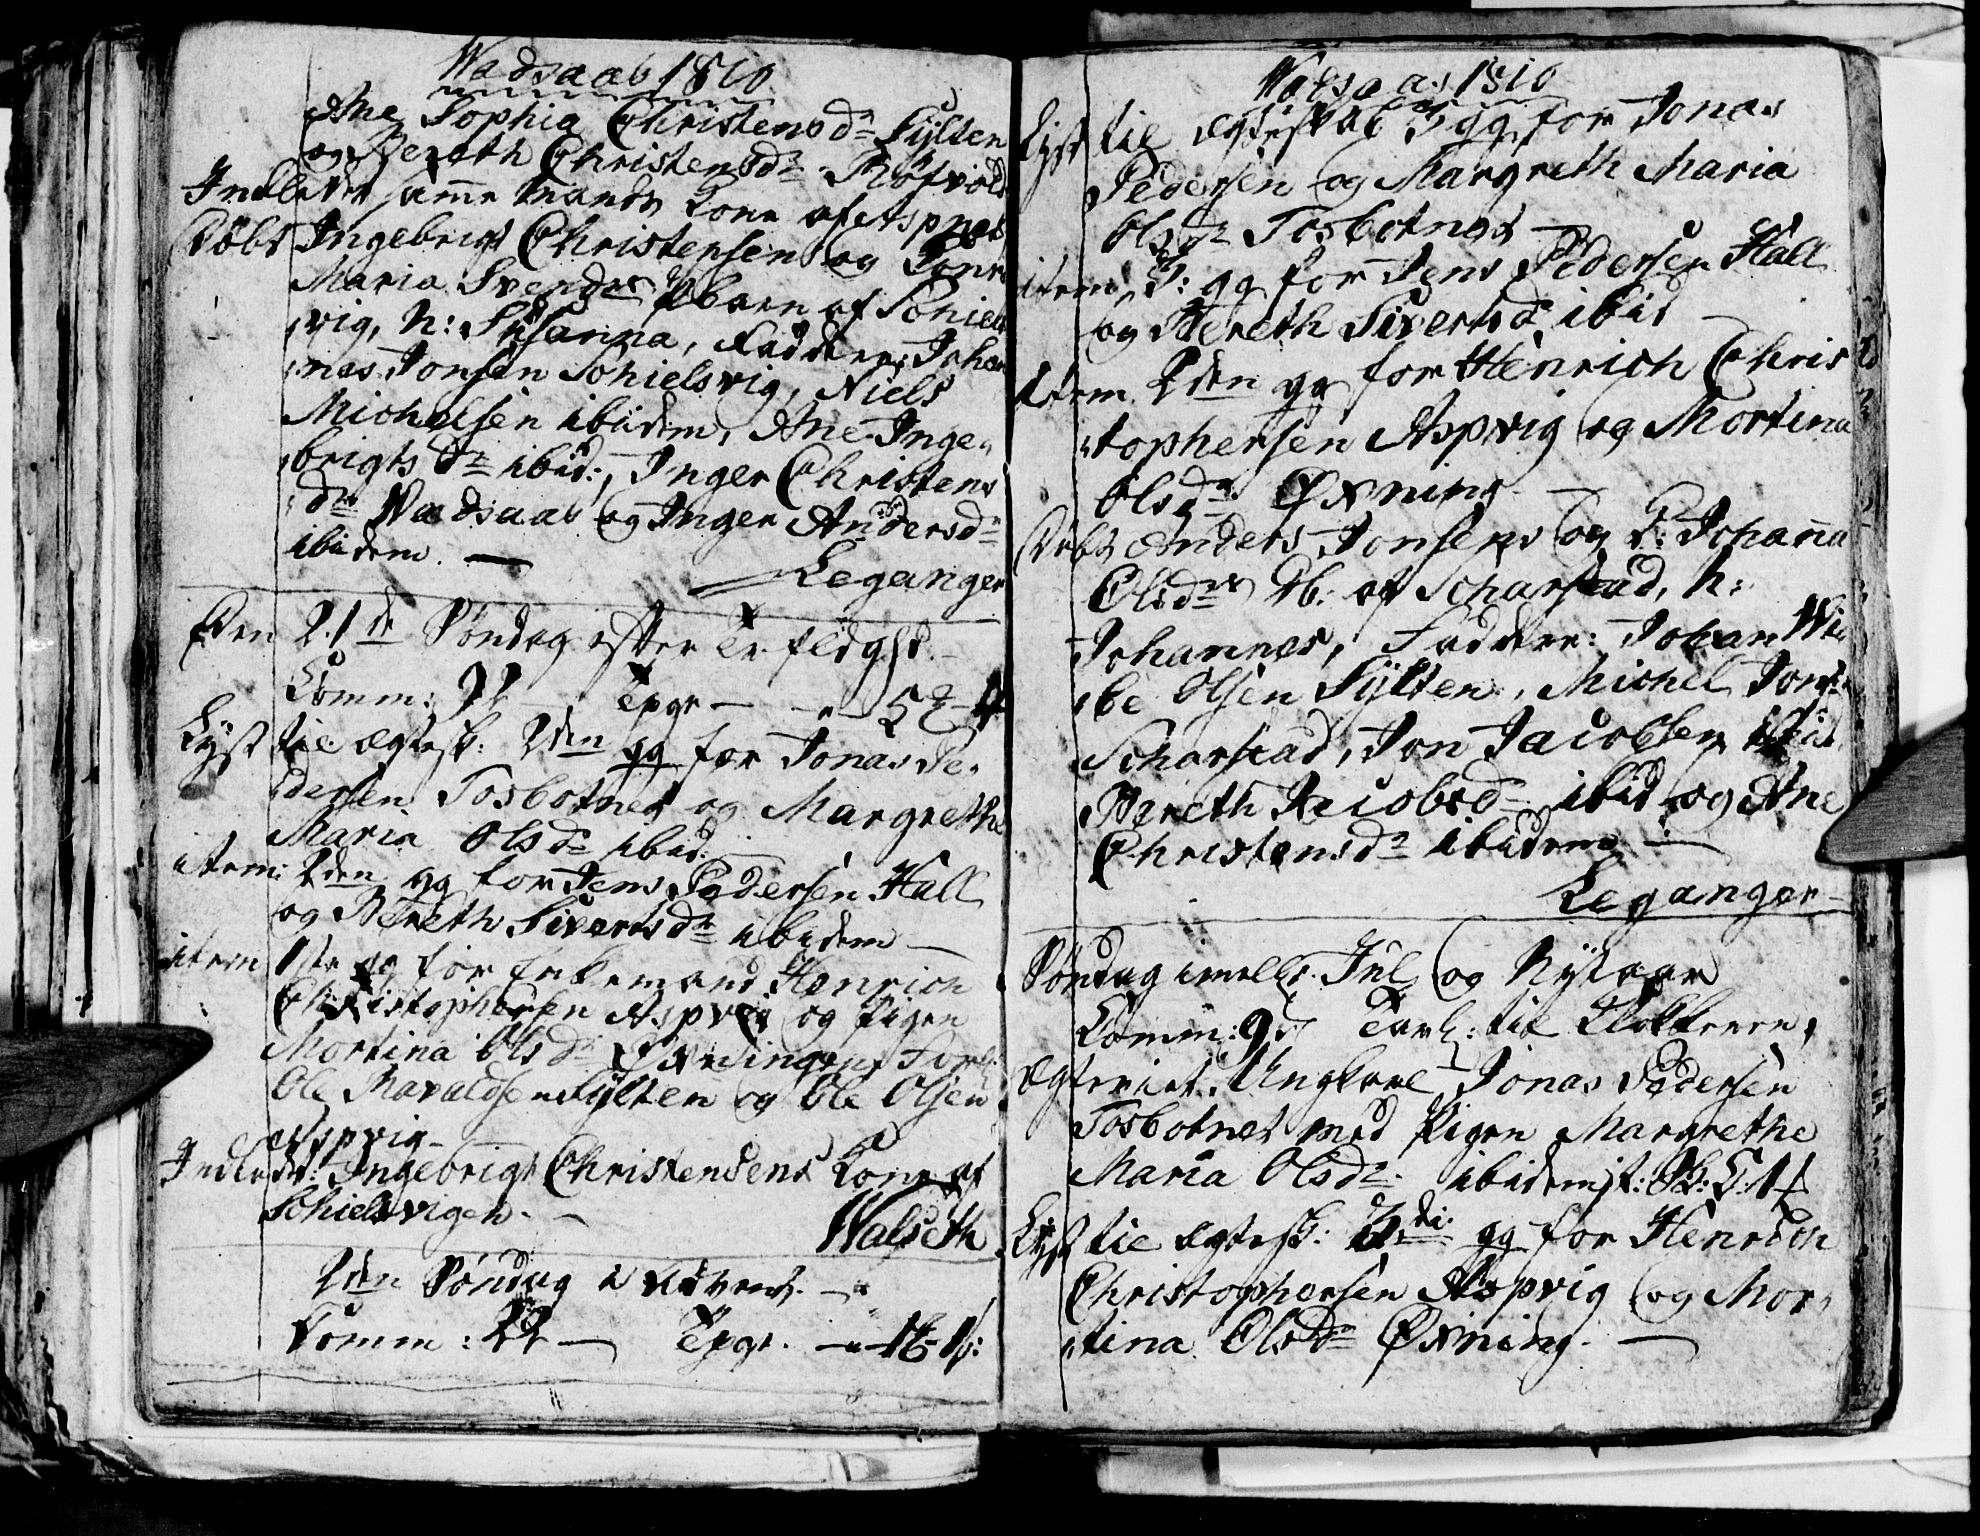 Wadsaab 1810
Ane Sophia Christensdr Sylten
og Bereth Christensdr
Indledet samme Mands Kone af Aspnes
Døbt Ingebrigt Christensen og Jonn
Maria Svendsdr Pbarn af Schiels
vig, n: Susanna, Faddere: Johan
nes Jonsen Schielsvig, Niels
Michelsen ibidem, Ane Inge
brigtsdr ibid:, Inger Christens
dr Wadsaab og Inger Andersdr
ibidem. —
Leganger
Den 21de Søndag efter Trefoldghd.
Comm: Tpgr —
Lyst til Ægtesk: 2den gg for Jonas Pe
dersen Tosbotnet og Margrethe
Maria Olsdr ibid:
item: 2den gg for Jens Pedersen Hall
og Bereth Sivertsdr ibidem —
item 1ste gg for Enkemand Henrich
Christophersen Aspvig og Pigen
Mortina Olsdr Øxningen, Forl:
Ole Sylten og Ole Olsen
Aspvig —
Indledt: Ingebrigt Christensens Kone af
Schielsvigen. —
Walseth
2den Søndag i Advent. —
Comm: 22 — Tpgr.
Wadsaa: 1810
Lyst til Ægteskab 3 gg for Jonas
Pedersen og Margreth Maria
Olsdr Tosbotnet —
item 3: gg for Jens Pedersen Hall
og Bereth Sivertsdr ibid —
item 2den gg for Henrich Chris
tophersen Aspvig og Mortina
Olsdr Øxning —
Døbt Anders Jonsens og K: Johanna
Olsdrs Pb: af Scharstad, n:
Johannes, Faddere: Johan Wi
be Olsen Sylten, Michel Jons:
Scharstad, Jon Jacobsen ibid
Bereth Jacobsdr ibid og Ane
Christensdr ibidem —
Leganger
Søndag imell: Jul og Nytaar
Comm: Tavl: til Klokkeren,
Ægteviet: Ungkarl Jonas Pedersen
Tosbotnet med Pigen Margrethe
Maria Olsdr ibidem
Lyst til Ægtesk: 3di gg for Henrich
Christophersen Aspvig og Mor
tina Olsdr Øxning. —